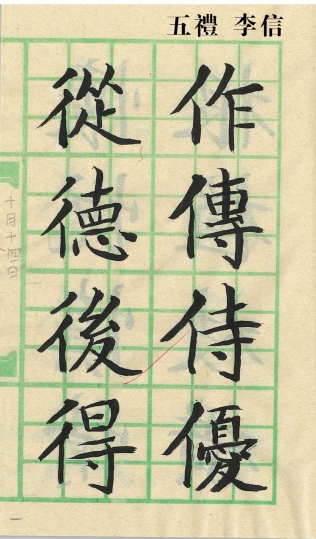 五禮 李信
作傳侍優
從德後得
十月十四日
一